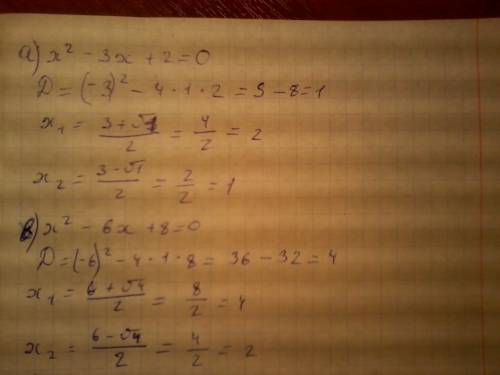 a) x² - 3x + 2 = 0
D = (-3)² - 4 · 1 · 2 = 9 - 8 = 1
x₁ = (3 + √1)/2 = 4/2 = 2
x₂ = (3 - √1)/2 = 2/2 = 1
в) x² - 6x + 8 = 0
D = (-6)² - 4 · 1 · 8 = 36 - 32 = 4
x₁ = (6 + √4)/2 = 8/2 = 4
x₂ = (6 - √4)/2 = 4/2 = 2